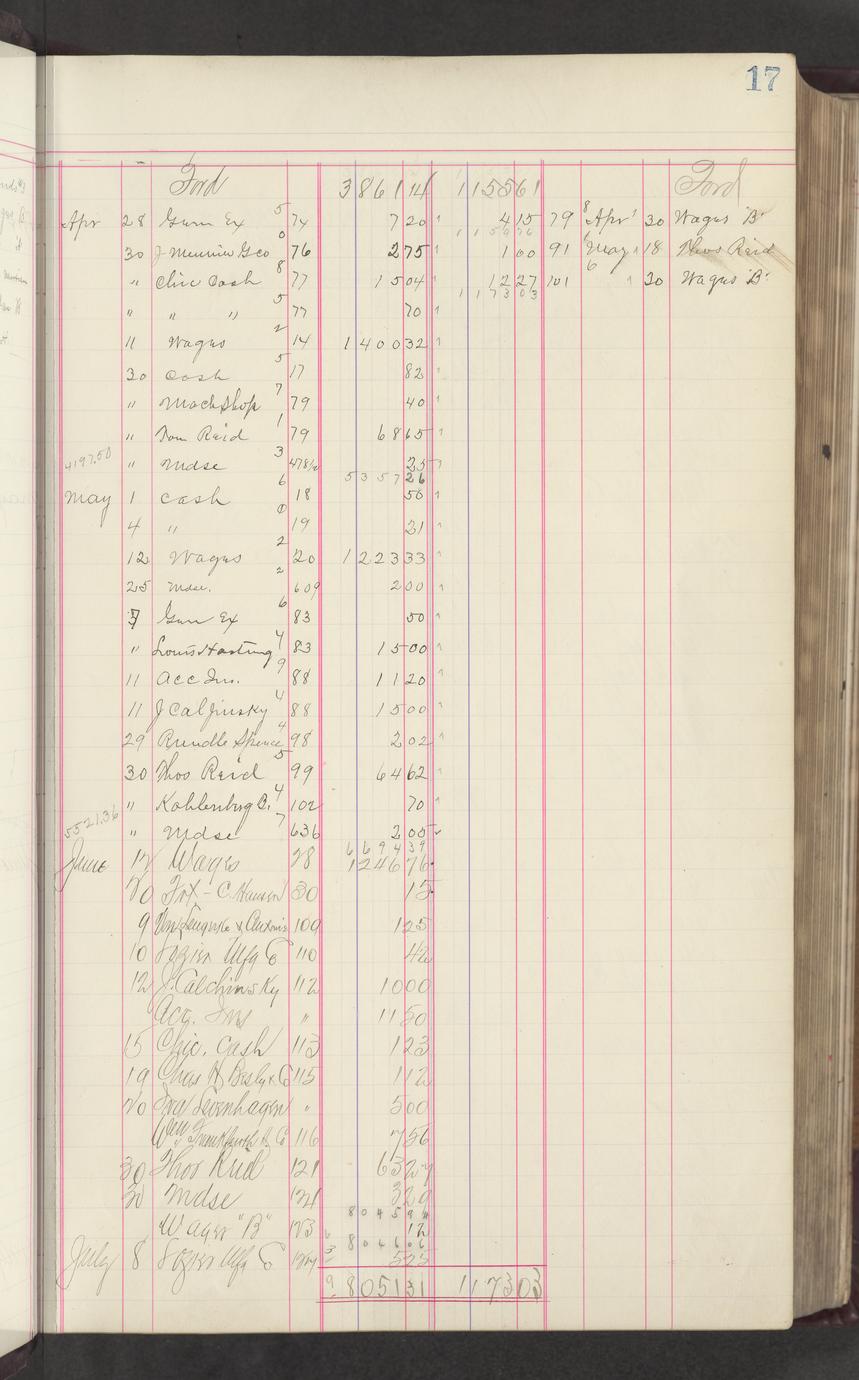 17
Ford 3861 14 1155 61 Ford
Apr 28 Gum Ex 5 74 7 20 4 15 79 8 Apr 30 Wages "B"
0 1159 76
30 76 2 75 1 00 91 May 18 Thos Reid
" Chic Cash 8 77 15 04 12 27 101 6 30 Wages "B"
" " " 5 77 70 1173 03
11 Wages 2 14 1400 32
30 Cash 5 17 82
" Mach Shop 7 79 40
" Tom Reid 1 79 68 65
4197.50 " Mdse 3 478½ 25
5357 26
May 1 Cash 6 18 56
4 " 0 19 21
12 Wages 2 20 1223 33
25 Mdse. 2 609 2 00
7 Gum Ex 6 83 50
" Louis Hartung 4 83 15 00
11 Acc Ins. 9 88 11 20
11 J Caljinsky 4 88 15 00
29 Rundle Spence 4 98 2 02
30 Thos Reid 5 99 64 62
" Kohlenburg B. 4 102 70
5521.36 " Mdse 7 636 2 00
6694 39
June 12 Wages 28 1246 76
20 Frt - C. Hansen 30 15
9 109 1 25
10 Lozier Mfg Co 110 42
12 J. Calchinsky 112 10 00
Acc. Ins " 11 50
15 Chic. Cash 113 1 23
19 Chas H Besly & Co 115 1 12
20 Levenhagen " 5 00
Wm Frankfurth H. Co 116 7 56
30 Thos Reid 121 63 27
30 Mdse 124 3 29
8045 94
Wages "B" 123 12
8046 06
July 8 Lozier Mfg Co 5 25
8051 31 1173 03